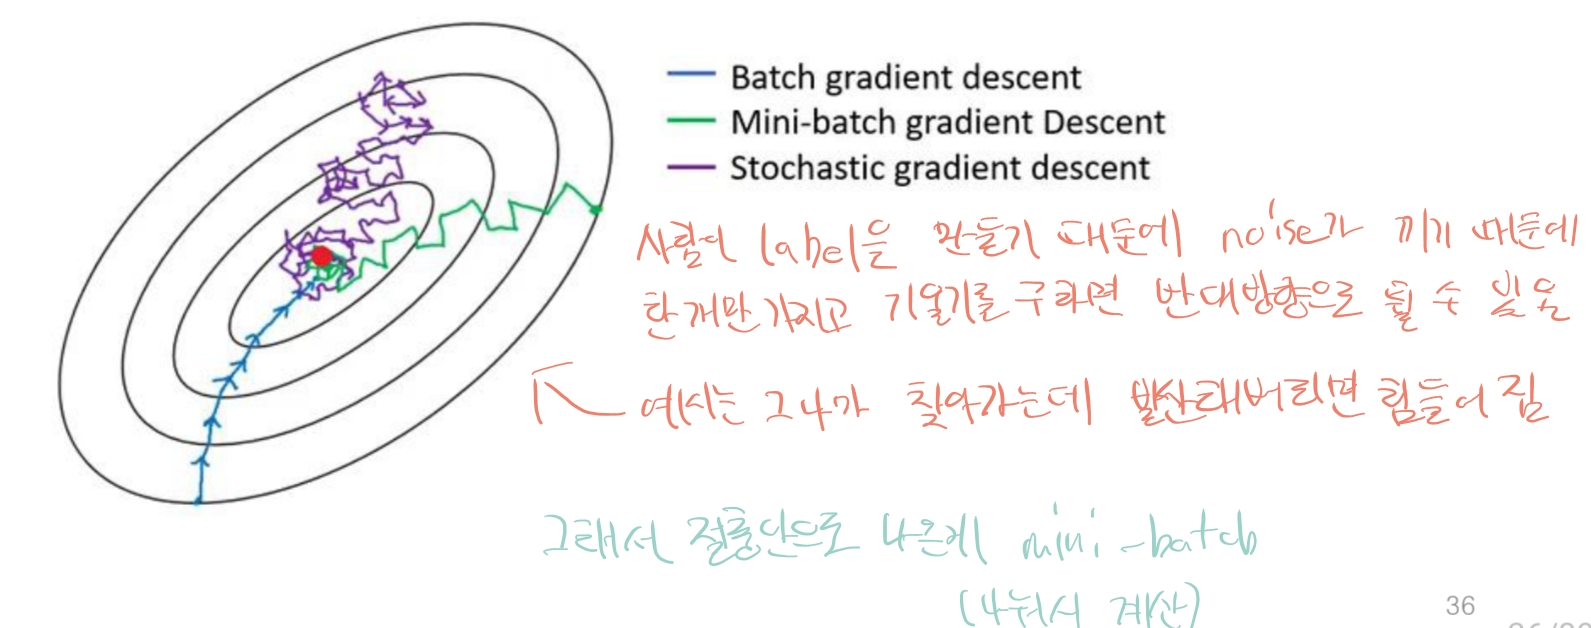 Batch gradient descent
Mini-batch gradient Descent
Stochastic gradient descent
사람이 label을 만들기 때문에 noise가 끼기 때문에
한개만 가지고 기울기를 구하면 반대방향으로 튈 수 있음
예시는 그나마 찾아가는데 발산해버리면 힘들어짐
그래서 절충안으로 나온게 mini-batch
(나눠서 계산)
36